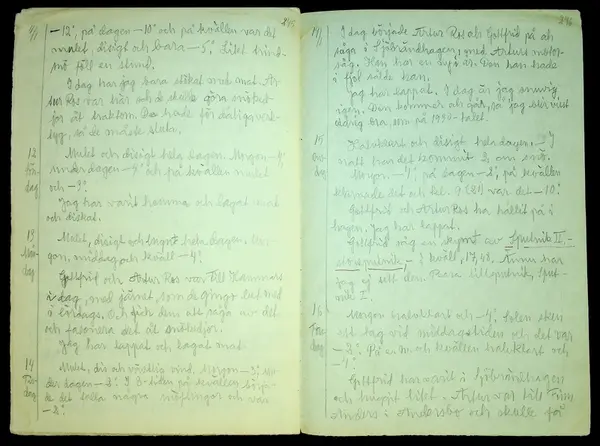 245
-12°, på dagen -10° och på kvällen var det
mulet, disigt och bara -5°. Litet
snö föll en stund.
I dag har jag bara stökat med mat. Ar-
tur Ros var här och de skulle göra
jor åt traktorn. De hade för dåliga verk-
tyg, så de måste sluta.
12
Sön-
dag
Mulet och disigt hela dagen. Morgon -4°
under dagen och på kvällen mulet
och -3°.
Jag har varit hemma och lagat mat
och diskat.
13
Mån-
dag
Mulet, disigt och lugnt hela dagen. Mor-
gon, middag och kväll -4°.
Gottfrid och Artur Ros var till Hammars
i dag, med järnet, som de gingo
i lördags. Och fick dem att såga av det
och
Jag har lappat och lagat mat
14
Tis-
dag
Mulet, dis och västlig vind. Morgon -3°. Un-
der dagen -2°. I 8-tiden på kvällen börja-
de det falla några snöflingor och var
-2°.
246
I dag började Artur Ros och Gottfrid på att
såga i Sjöbrändhagen, med Arturs motor-
såg. Han har en ny i år. Den han hade
i fjol sålde han.
Jag har lappat. I dag är jag snuvig
igen. Den kommer allt går, så jag blir visst
aldrig bra, som på 1930-talet.
15
Ons-
dag
Halvklart och disigt hela dagen. I
natt har det kommit 2 cm snö.
Morgon på dagen på kvällen
klarnade det och kl. 9 (21) var det -10°.
Gottfrid och Artur Ros ha hållit på i
hagen. Jag har lappat.
Gottfrid såg en skymt av Sputnik II,
i kväll, 17,48. Ännu har
jag ej sett den. Bara lillsputnik, Sput-
nik I.
16
Tors-
dag
Morgon halvklart och -4°. Solen sken
ett tag vid middagstiden och det var
-3°. På e.m. och kvällen halvklart och
-4°.
Gottfrid har varit i Sjöbrändhagen
och huggit litet. Artur var till Finn
Anders i Andersbo och skulle på